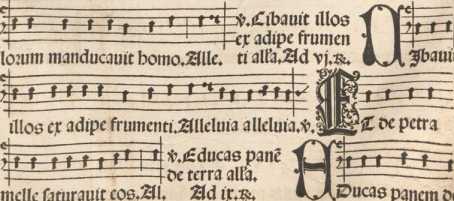 ℣. Cibauit illos
ex adipe frumen
loꝛum manducauit homo. Alle. ti all'a. Ad vj. ℟. CIbaui
illos ex adipe frumenti. Alleluia alleluia. ℣. ET de petra
℣. Educas panē
de terra all'a.
melle ſaturauit eos. Al. Ad ix. ℟. EDucas panem de